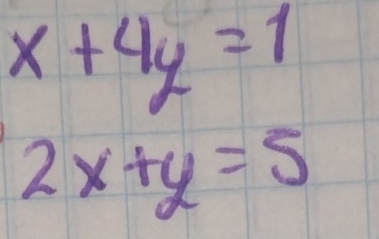 x + 4y = 1
2x + y = 5